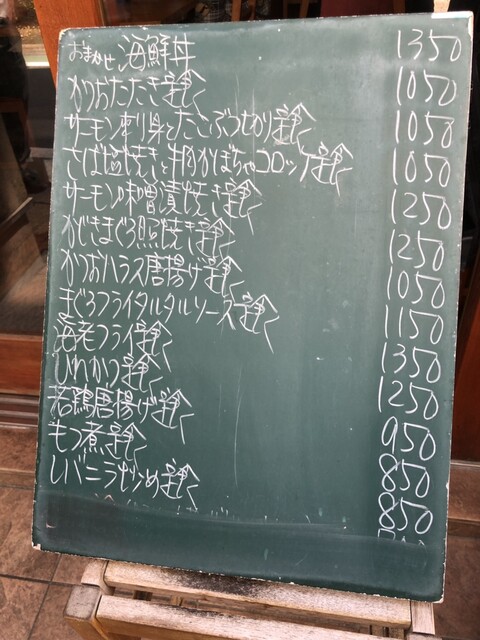 おまかせ 海鮮丼 1350
かつおたたき定食 1050
サーモン刺身とたこぶつ切り定食 1050
さば塩焼きと牛肉かぼちゃコロッケ定食 1050
サーモン味噌漬焼き定食 1250
かじきまぐろ照焼き定食 1250
かつおハラス唐揚げ定食 1050
まぐろフライタルタルソース定食 1150
海老フライ定食 1350
ひれかつ定食 1250
若鶏唐揚げ定食 950
もつ煮定食 850
レバニラ炒め定食 850